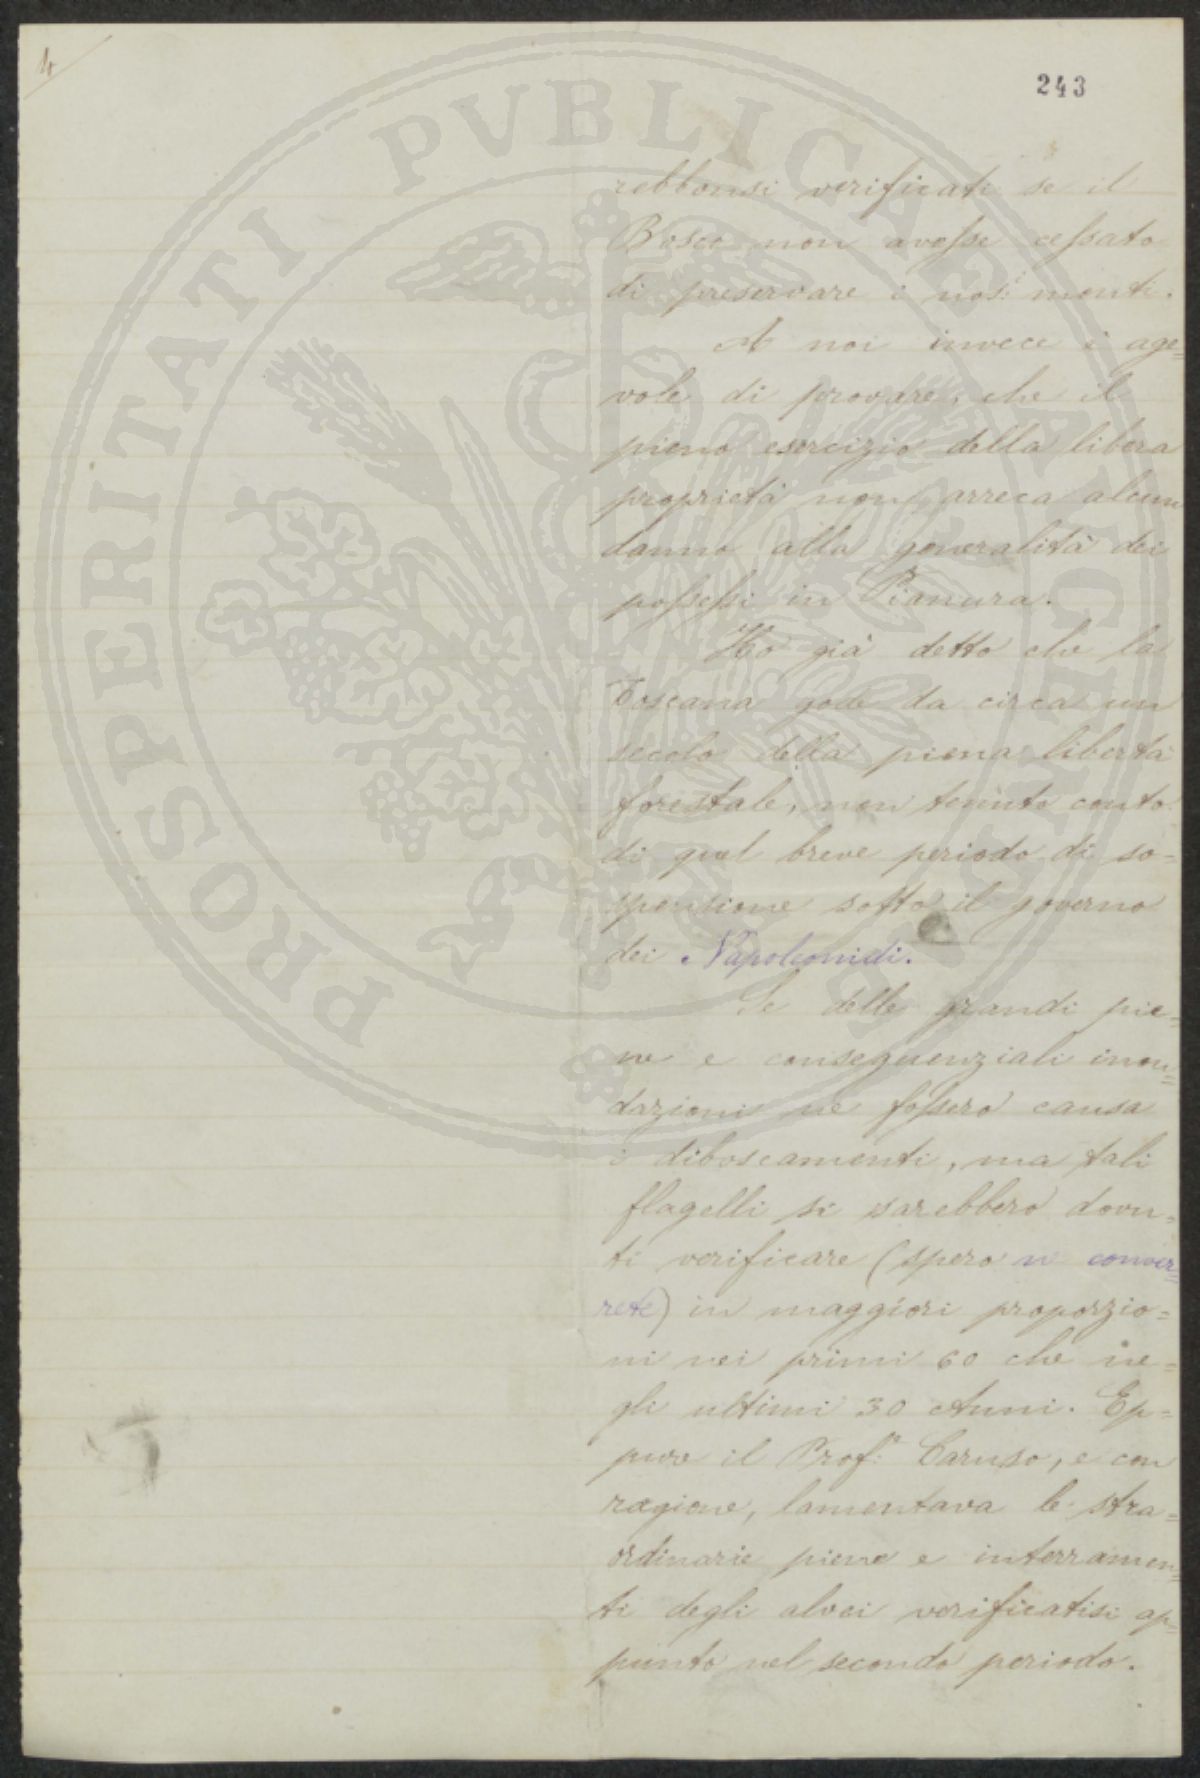 4
243
rebbonsi verificati se il
Bosco non avesse cessato
di preservare i nos: monti.
A noi invece è age=
vole di provare, che il
pieno esercizio della libera
proprietà non arreca alcun
danno alla generalità dei
possessi in Pianura.
Ho già detto che la
Toscana gode da circa un
secolo della piena libertà
forestale, non tenuto conto
di quel breve periodo di so=
spensione sotto il governo
dei Napoleonidi.
Se delle grandi pie=
ne e conseguenziali inon=
dazioni ne fossero causa
i diboscamenti, ma tali
flagelli si sarebbero dovu=
ti verificare (spero ne conver=
rete) in maggiori proporzio=
ni nei primi 60 che ne=
gli ultimi 30 Anni. Ep=
pure il Prof.r Caruso, e con
ragione, lamentava le stra=
ordinarie piene e interramen=
ti degli alvei verificatisi ap=
punto nel secondo periodo.
PROSPERITATI PVBLICAE AVGENDAE